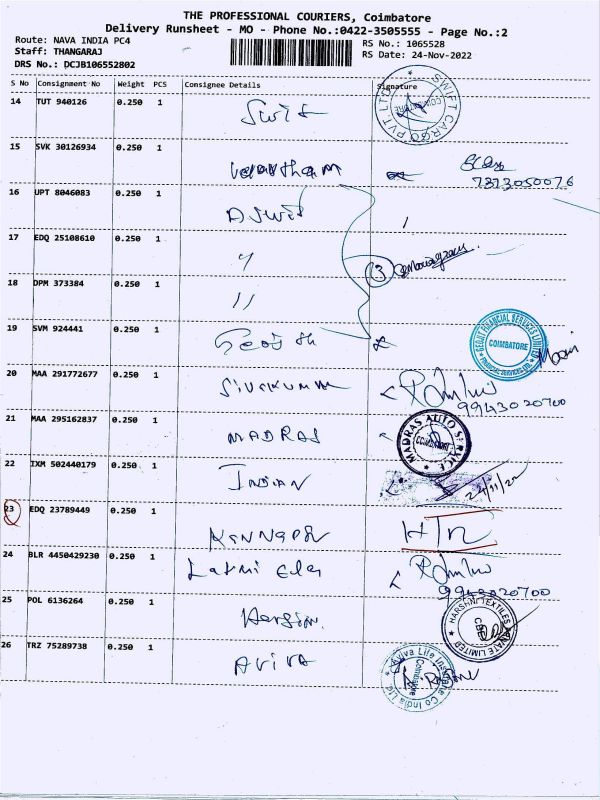 THE PROFESSIONAL COURIERS, Coimbatore
Delivery Runsheet - MO - Phone No.:0422-3505555 - Page No.:2
Route: NAVA INDIA PC4
RS No.: 1065528
Staff: THANGARAJ
RS Date: 24-Nov-2022
DRS No.: DCJB106552802
S No Consignment No Weight PCS Consignee Details Signature
14 TUT 940126 0.250 1 Swift
SWIFT CARGO PVT. LTD COIMBATORE
15 SVK 30126934 0.250 1
7373050076
16 UPT 8046083 0.250 1
17 EDQ 25108610 0.250 1 "
3
18 DPM 373384 0.250 1 "
19 SVM 924441 0.250 1 Geojit
GEOJIT FINANCIAL SERVICES LIMITED COIMBATORE
20 MAA 291772677 0.250 1 Sivakumar
9943020700
21 MAA 295162837 0.250 1 MADRAS
MADRAS AUTO SERVICE COIMBATORE
22 IXM 502440179 0.250 1 INDIAN
24/11/22
23 EDQ 23789449 0.250 1
24 BLR 4450429230 0.250 1 Laxmi
9943020700
25 POL 6136264 0.250 1
HARSHNI TEXTILES PRIVATE LIMITED CBE
26 TRZ 75289738 0.250 1 AVIVA
Aviva Life Insurance Co India Ltd Coimbatore